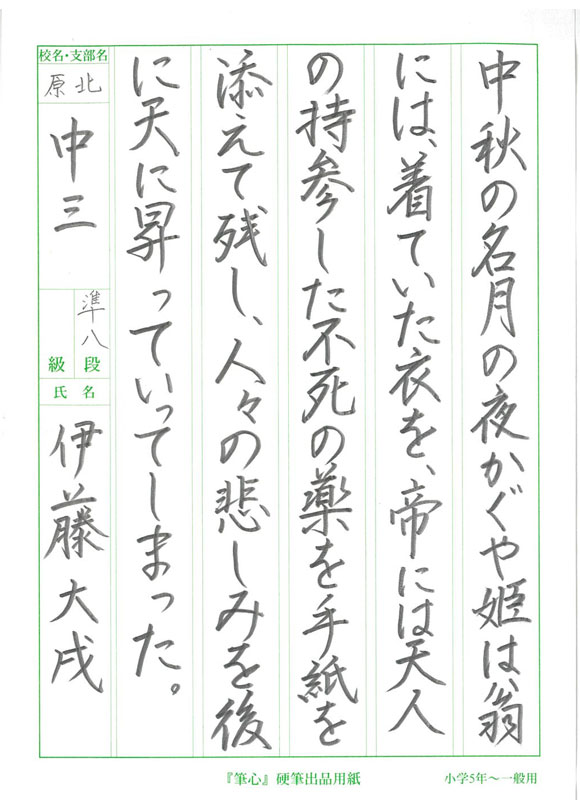 中秋の名月の夜かぐや姫は翁
には、着ていた衣を、帝には天人
の持参した不死の薬を手紙を
添えて残し、人々の悲しみを後
に天に昇っていってしまった。
校名・支部名
原北
中三
準八
段
級
氏名
伊藤大戌
『筆心』硬筆出品用紙
小学5年〜一般用